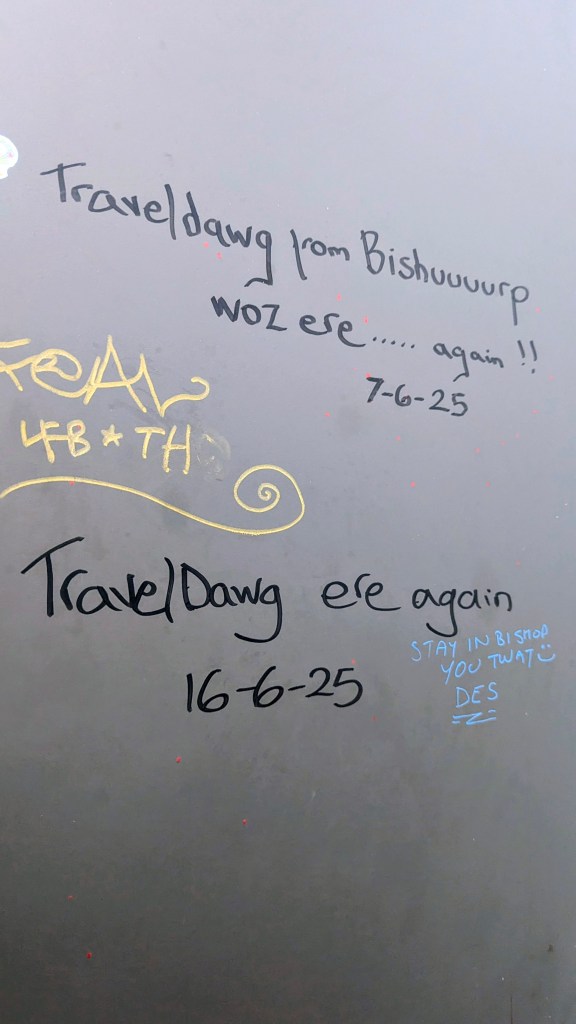 Traveldawg from Bishuuuurp
woz ere..... again !!
7-6-25
FeAL
4FB ★ TH
TravelDawg ere again
16-6-25
STAY IN BISHOP
YOU TWAT
DES